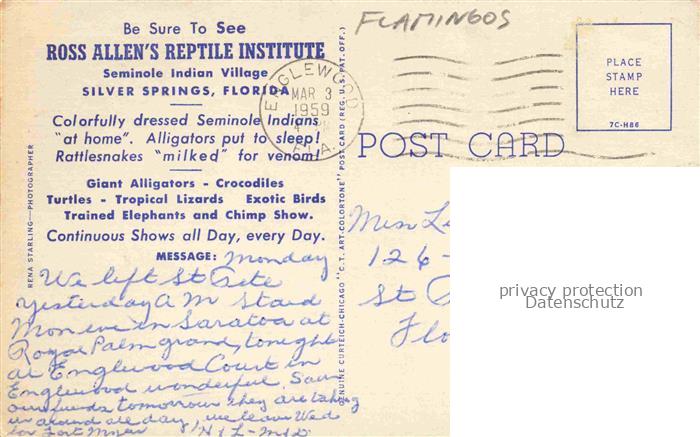 FLAMINGOS
Be Sure To See
ROSS ALLEN'S REPTILE INSTITUTE
Seminole Indian Village
SILVER SPRINGS, FLORIDA
Colorfully dressed Seminole Indians
"at home". Alligators put to sleep!
Rattlesnakes "milked" for venom!
Giant Alligators - Crocodiles
Turtles - Tropical Lizards Exotic Birds
Trained Elephants and Chimp Show.
Continuous Shows all Day, every Day.
MESSAGE: Monday
We left St Pete
yesterday A M Staid
Mon eve in Saratoa at
Royal Palm grand, tonight
at Englewood Court in
Englewood wonderful. Saw
our funds tomorrow they are taking
us around all day, we leave Wed
for Fort Myer
RENA STARLING—PHOTOGRAPHER
GENUINE CURTEICH-CHICAGO "C.T. ART-COLORTONE" POST CARD (REG. U.S. PAT. OFF.)
ENGLEWOOD
MAR 3
1959
FLA.
POST CARD
PLACE
STAMP
HERE
7C-H86
126-
St
Flo
privacy protection
Datenschutz